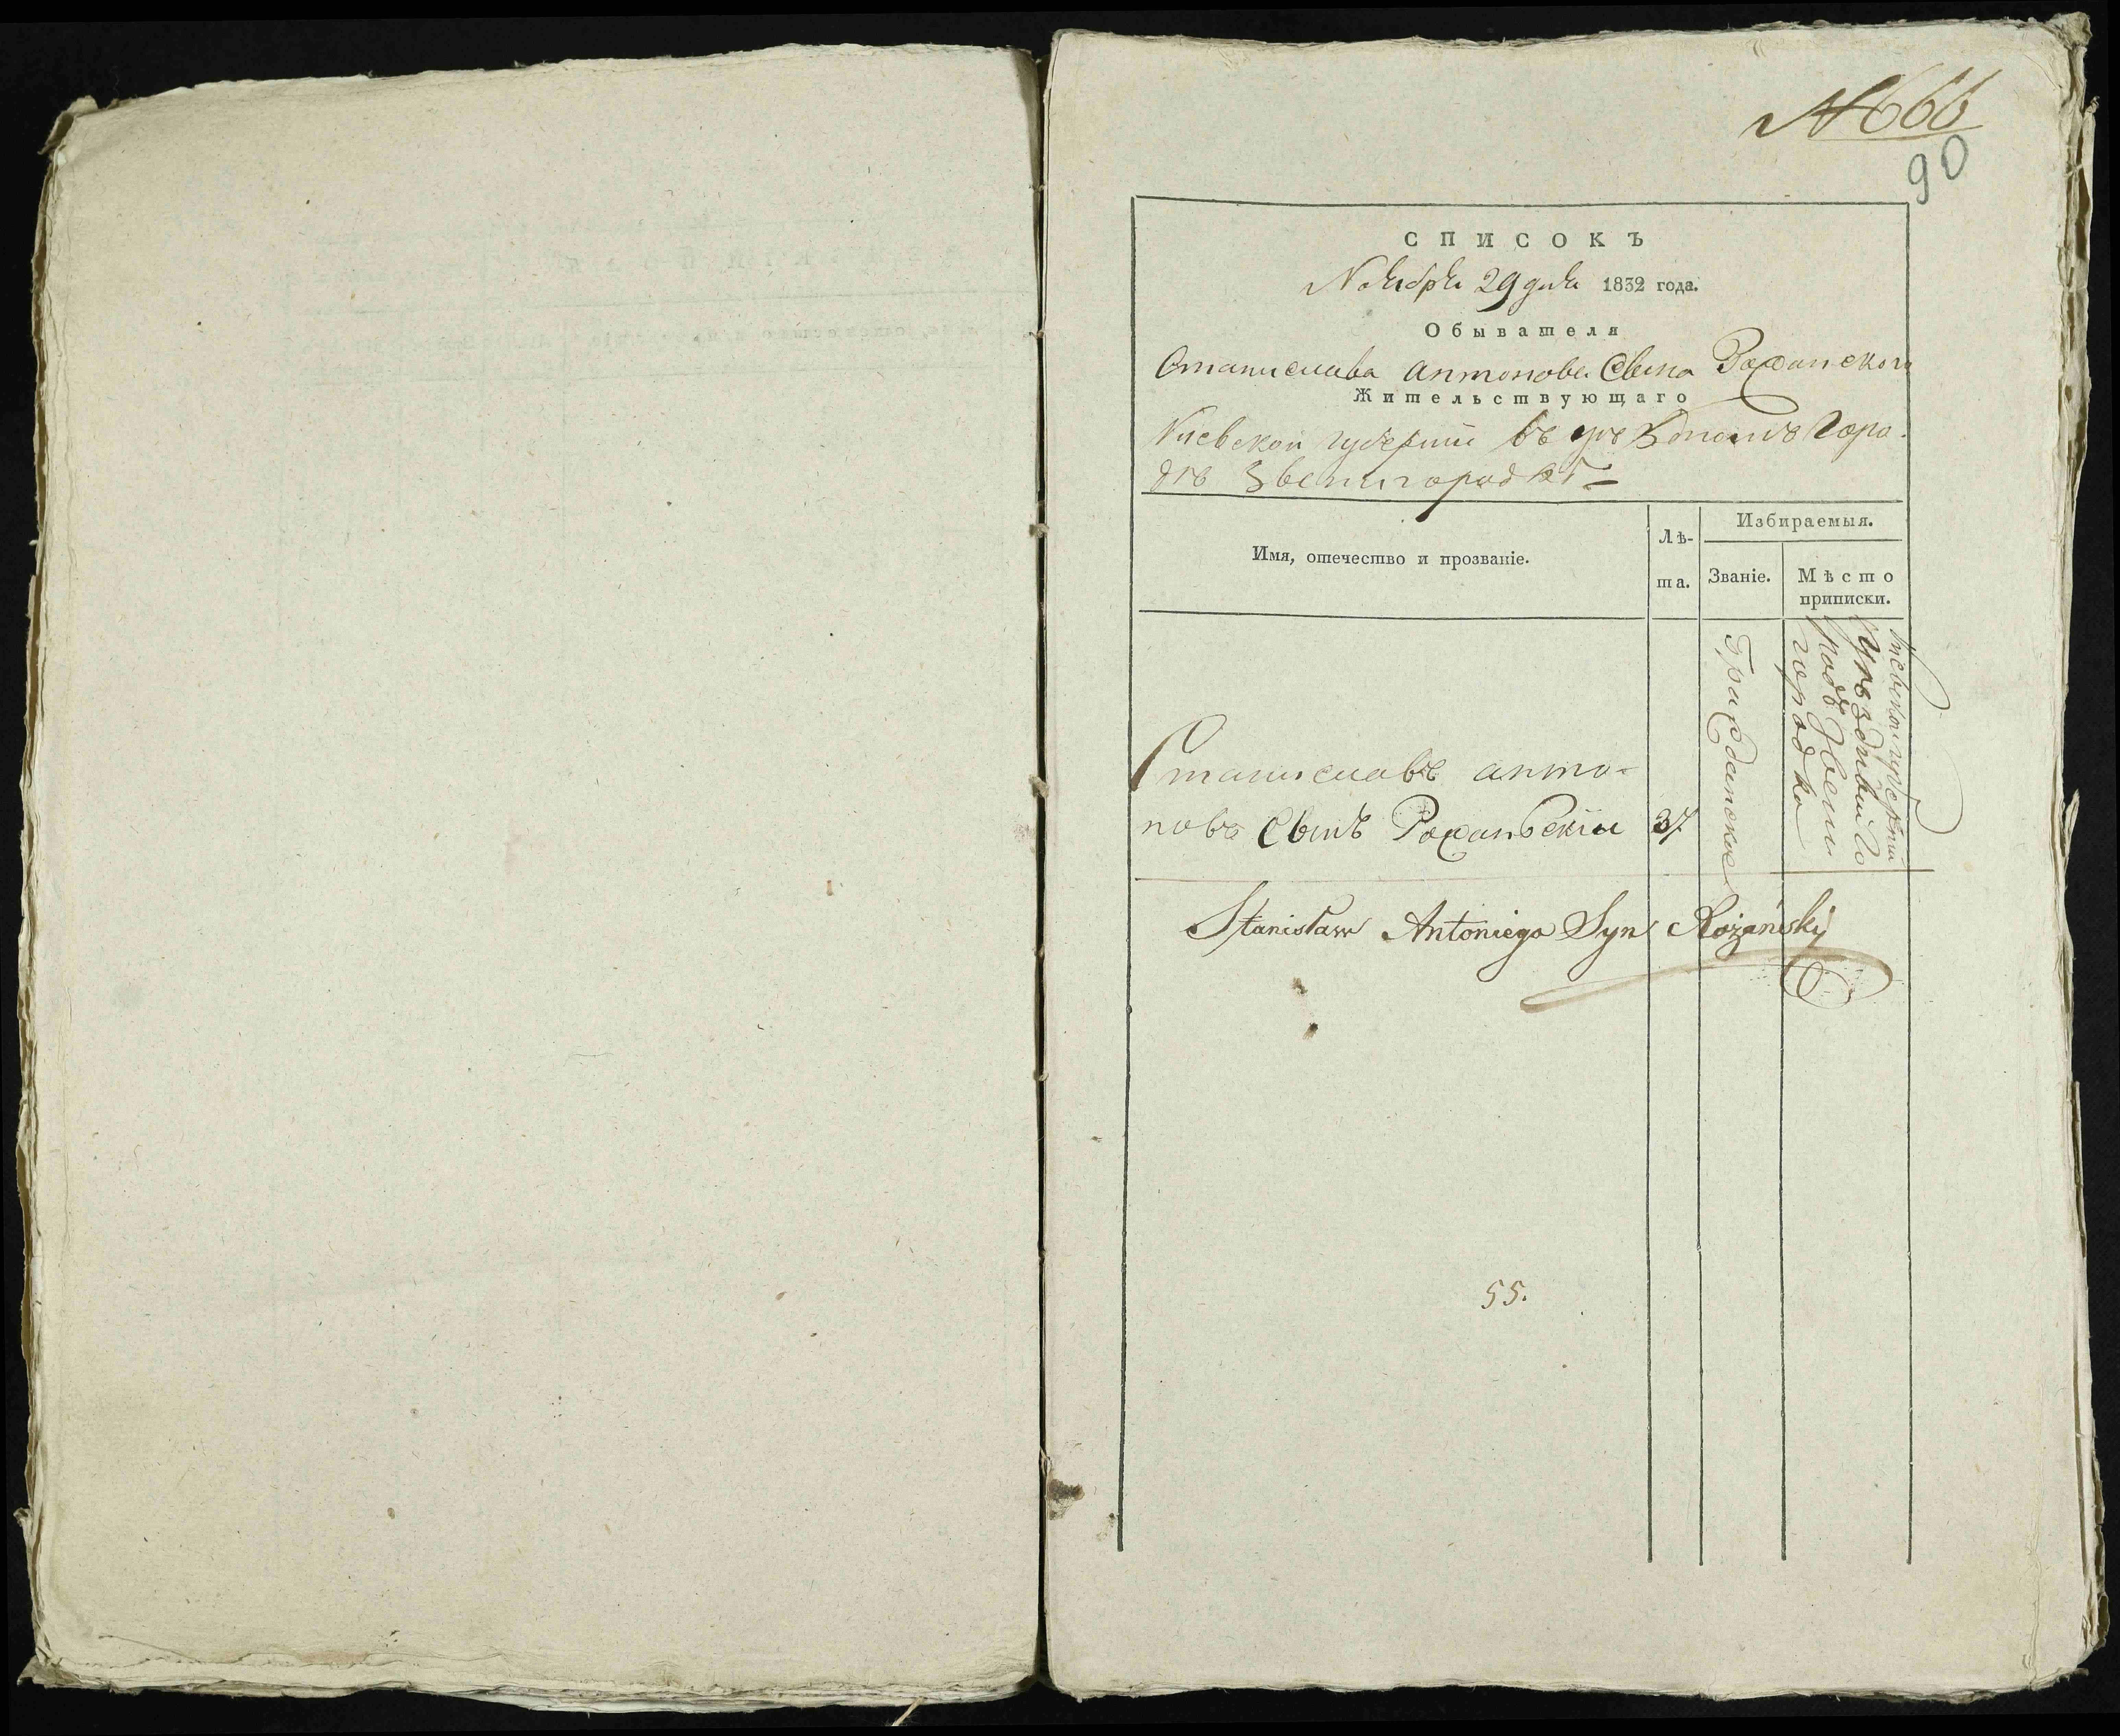 № 66
90
СПИСОКЪ
Ноября 29 дня 1832 года.
Обывателя
Станислава Антонова Сына Рожанского
Жительствующаго
Киевской губернии въ уѣздномъ Горо-
дѣ Звенигородкѣ
Имя, отечество и прозваніе.
Лѣ-
та.
Избираемыя.
Званіе.
Мѣсто
приписки.
Станиславъ Анто-
новъ Сынъ Рожанский
37
Гражданское
Киевской губернии
уѣздный Го
родъ Звени
городка
Stanisław Antoniego Syn Rożański
55.